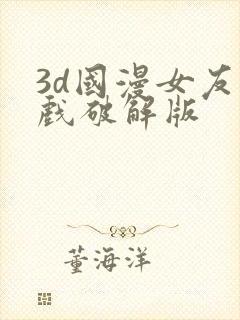 3d國漫女友
戲破解版
董海洋